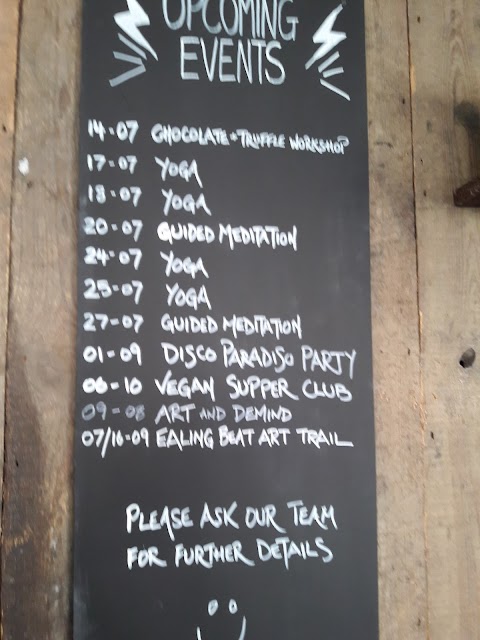 UPCOMING
EVENTS
14-07 CHOCOLATE + TRUFFLE WORKSHOP
17-07 YOGA
18-07 YOGA
20-07 GUIDED MEDITATION
24-07 YOGA
25-07 YOGA
27-07 GUIDED MEDITATION
01-09 DISCO PARADISO PARTY
06-10 VEGAN SUPPER CLUB
09-08 ART AND DEMIND
07/16-09 EALING BEAT ART TRAIL
PLEASE ASK OUR TEAM
FOR FURTHER DETAILS